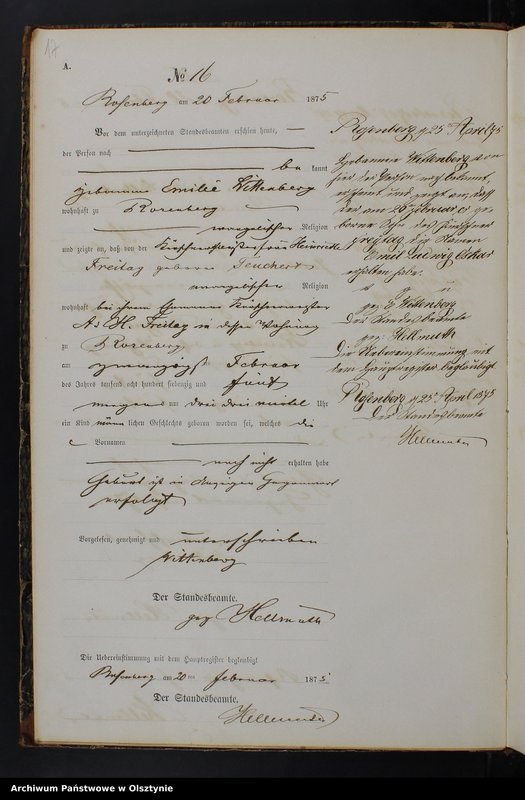 17
A.
No 16
Rosenberg am 20 Februar 1875
Vor dem unterzeichneten Standesbeamten erschien heute,
der Person nach
be kannt
Hebamme Emilie Wittenberg
wohnhaft zu Rosenberg
evangelischer Religion
und zeigte an, daß von der Heinriette
Freitag geborene Teuchert
evangelischer Religion
wohnhaft bei ihrem Ehemanne
A. H. Freitag in dessen Wohnung
zu Rosenberg
am zwanzigst Februar
des Jahres tausend acht hundert siebenzig und fünf
morgens um drei drei viertel Uhr
ein Kind männ lichen Geschlechts geboren worden sei, welches die
Vornamen
noch nicht erhalten habe
Geburt ist in Gegenwart
erfolgt
Vorgelesen, genehmigt und unterschrieben
Wittenberg
Der Standesbeamte.
gez Hellmuth
Die Uebereinstimmung mit dem Hauptregister beglaubigt
Rosenberg am 20 ten Februar 1875
Der Standesbeamte.
Hellmuth
Rosenberg d 25 April 75
Hebamme Wittenberg von
hier der Person nach bekannt,
erscheint und zeigt an, daß
der am 20 Februar cr ge-
borene Sohn des
Freitag die Namen
Emil Ludwig Oskar
erhalten habe.
v g u
gez. E. Wittenberg
Der Standesbeamte
gez: Hellmuth
Die Uebereinstimmung mit
dem Hauptregister beglaubigt
Rosenberg d 25 April 1875
Der Standesbeamte
Hellmuth
Archiwum Państwowe w Olsztynie